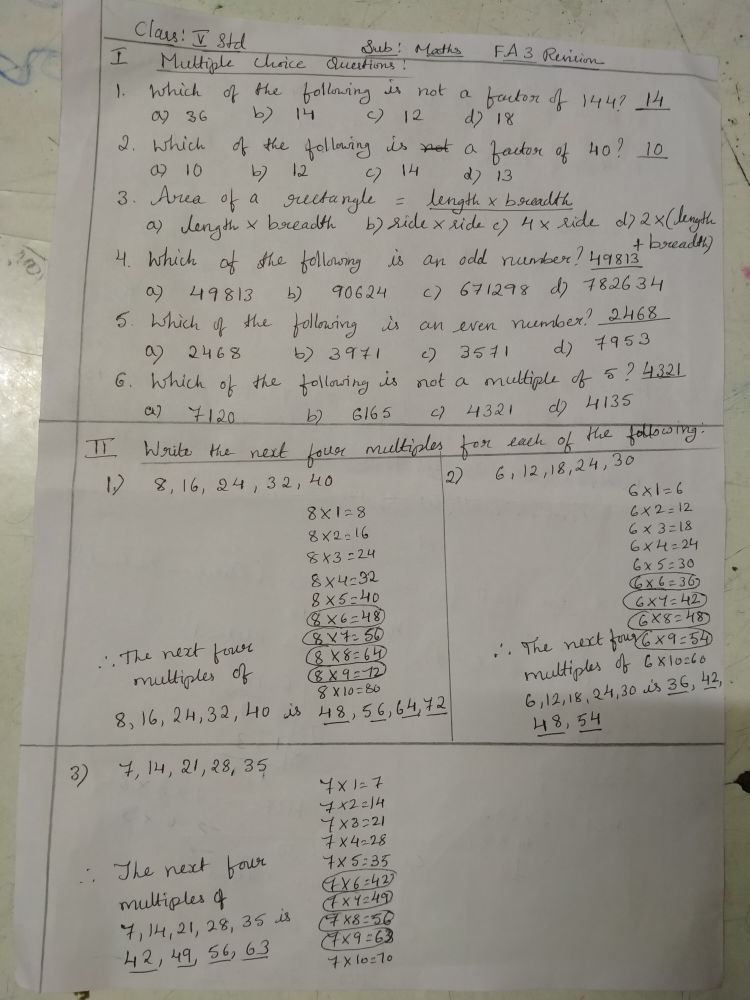 Class: V Std Sub: Maths FA3 Revision
I Multiple Choice Questions:
1. Which of the following is not a factor of 144? 14
a) 36 b) 14 c) 12 d) 18
2. Which of the following is not a factor of 40? 10
a) 10 b) 12 c) 14 d) 13
3. Area of a rectangle = length × breadth
a) length × breadth b) side × side c) 4 × side d) 2×(length + breadth)
4. Which of the following is an odd number? 49813
a) 49813 b) 90624 c) 671298 d) 782634
5. Which of the following is an even number? 2468
a) 2468 b) 3971 c) 3571 d) 7953
6. Which of the following is not a multiple of 5? 4321
a) 7120 b) 6165 c) 4321 d) 4135
II Write the next four multiples for each of the following:
1) 8, 16, 24, 32, 40
8×1=8
8×2=16
8×3=24
8×4=32
8×5=40
8×6=48
8×7=56
8×8=64
8×9=72
8×10=80
∴ The next four
multiples of
8, 16, 24, 32, 40 is 48, 56, 64, 72
2) 6, 12, 18, 24, 30
6×1=6
6×2=12
6×3=18
6×4=24
6×5=30
6×6=36
6×7=42
6×8=48
6×9=54
6×10=60
∴ The next four
multiples of
6, 12, 18, 24, 30 is 36, 42,
48, 54
3) 7, 14, 21, 28, 35
7×1=7
7×2=14
7×3=21
7×4=28
7×5=35
7×6=42
7×7=49
7×8=56
7×9=63
7×10=70
∴ The next four
multiples of
7, 14, 21, 28, 35 is
42, 49, 56, 63